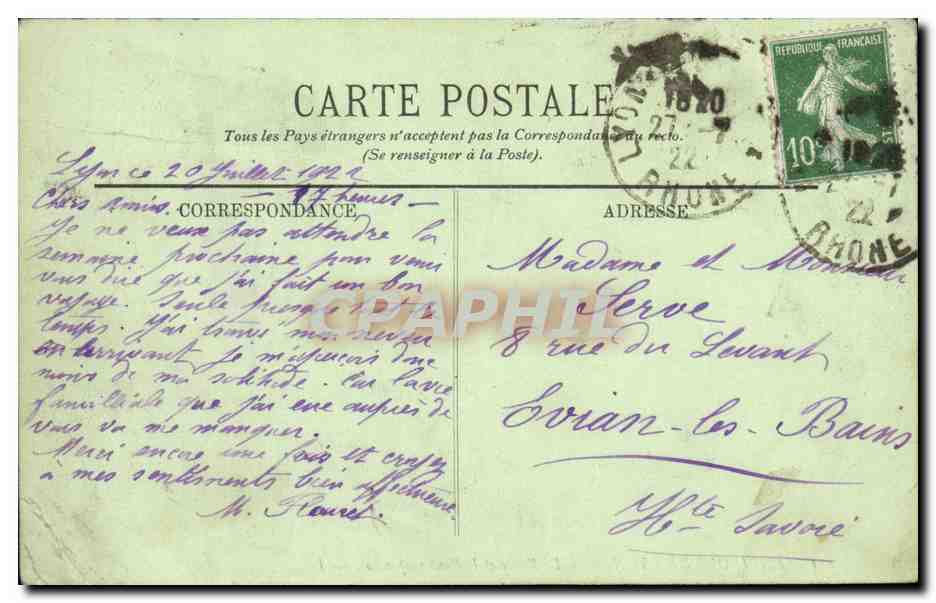 CARTE POSTALE
Tous les Pays étrangers n'acceptent pas la Correspondance au recto.
(Se renseigner à la Poste).
CORRESPONDANCE
Lyon ce 20 Juillet 1922
17 heures
Chers amis.
Je ne veux pas attendre la
semaine prochaine pour venir
vous dire que j'ai fait un bon
voyage. Seule presque tout le
temps. J'ai trouvé mon neveu
en arrivant. Je m'aperçois donc
moins de ma solitude. Car la vie
familliale que j'ai eue auprès de
vous va me manquer.
Merci encore une fois et croyez
à mes sentiments bien affectueux.
M.
ADRESSE
Madame et Monsieur
Serve
8 rue du Levant
Evian-les-Bains
Hte Savoie
REPUBLIQUE FRANÇAISE
10
LYON
1820
22
RHONE
22
RHONE
CPAPHIL